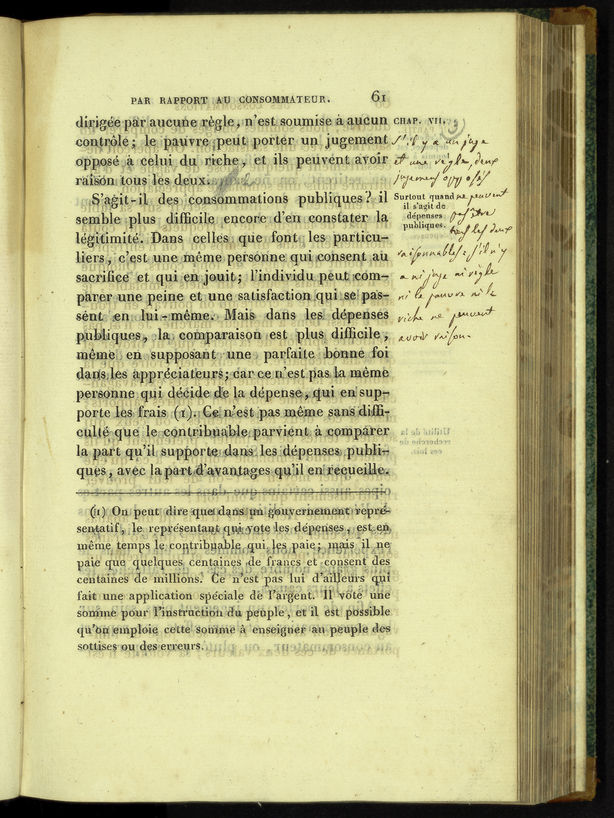 PAR RAPPORT AU CONSOMMATEUR. 61
dirigée par aucune règle, n'est soumise à aucun
contrôle; le pauvre peut porter un jugement
opposé à celui du riche, et ils peuvent avoir
raison tous les deux.
S'agit-il des consommations publiques? il
semble plus difficile encore d'en constater la
légitimité. Dans celles que font les particu-
liers, c'est une même personne qui consent au
sacrifice et qui en jouit; l'individu peut com-
parer une peine et une satisfaction qui se pas-
sent en lui-même. Mais dans les dépenses
publiques, la comparaison est plus difficile,
même en supposant une parfaite bonne foi
dans les appréciateurs; car ce n'est pas la même
personne qui décide de la dépense, qui en sup-
porte les frais (1). Ce n'est pas même sans diffi-
culté que le contribuable parvient à comparer
la part qu'il supporte dans les dépenses publi-
ques, avec la part d'avantages qu'il en recueille.
(1) On peut dire que dans un gouvernement repré-
sentatif, le représentant qui vote les dépenses, est en
même temps le contribuable qui les paie; mais il ne
paie que quelques centaines de francs et consent des
centaines de millions. Ce n'est pas lui d'ailleurs qui
fait une application spéciale de l'argent. Il vote une
somme pour l'instruction du peuple, et il est possible
qu'on emploie cette somme à enseigner au peuple des
sottises ou des erreurs.
CHAP. VII.
s'il y a un juge
et une règle, deux
jugemens opposés
Surtout quand
il s'agit de
dépenses
publiques.
ne peuvent
pas être
tous les deux
raisonnables; s'il n'y
a ni juge ni règle
ni le pauvre ni le
riche ne peuvent
avoir raison.